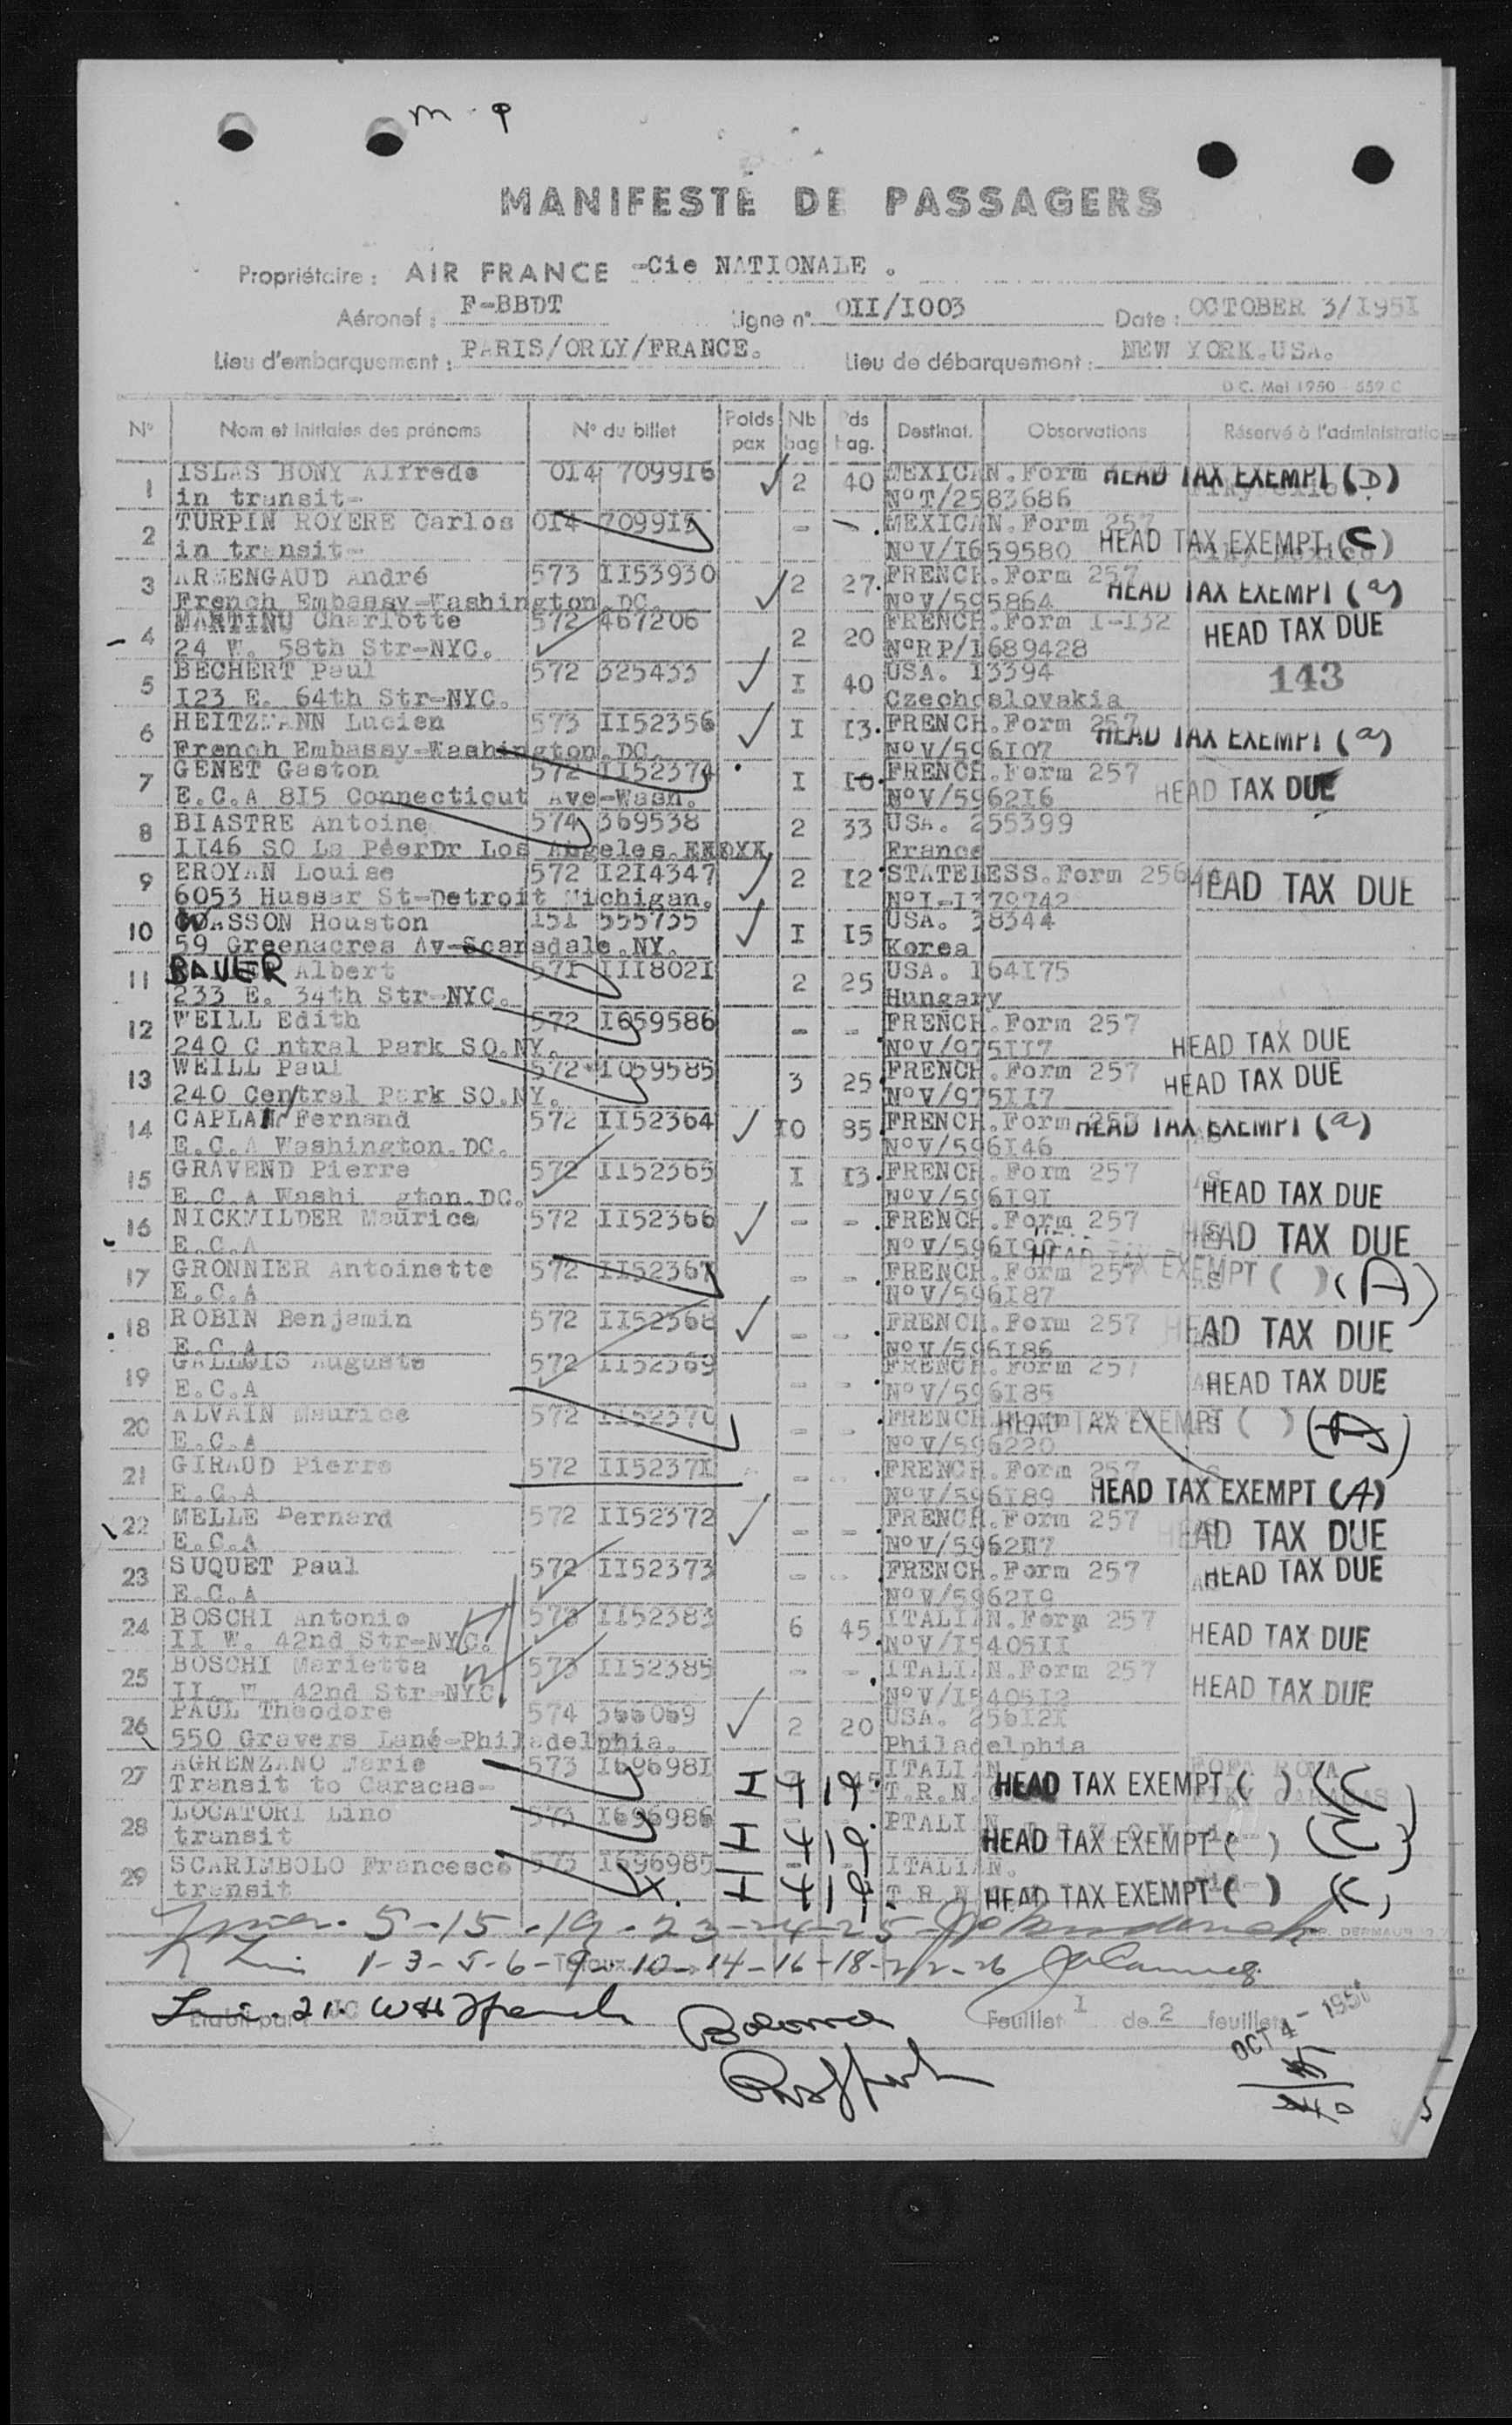 m - 9
MANIFESTE DE PASSAGERS
Propriétaire : AIR FRANCE -Cie NATIONALE .
Aéronef : F-BBDT Ligne n° OII/I003 Date : OCTOBER 3/I95I
Lieu d'embarquement : PARIS/ORLY/FRANCE. Lieu de débarquement : NEW YORK.USA.
D C. Mai 1950 - 559 C
N° Nom et initiales des prénoms N° du billet Poids pax Nb bag Pds bag. Destinat. Observations Réservé à l'administration
1 ISLAS BONY Alfredo 014 709916 2 40 MEXICAN.Form HEAD TAX EXEMPT (D)
in transit- N°T/2583686
2 TURPIN ROYERE Carlos 014 709917 - - MEXICAN.Form 257
in transit- N°V/I659580 HEAD TAX EXEMPT (C)
3 ARMENGAUD André 573 II53930 2 27 FRENCH.Form 257
French Embassy-Washington.DC. N°V/595864 HEAD TAX EXEMPT (a)
4 MARTINU Charlotte 572 467206 2 20 FRENCH.Form I-I32 HEAD TAX DUE
24 W. 58th Str-NYC. N°RP/I689428
5 BECHERT Paul 572 325433 I 40 USA. I3394 143
I23 E. 64th Str-NYC. Czechoslovakia
6 HEITZMANN Lucien 573 II52356 I I3 FRENCH.Form 257
French Embassy-Washington.DC. N°V/596I07 HEAD TAX EXEMPT (a)
7 GENET Gaston 572 II52374 I I0 FRENCH.Form 257
E.C.A 8I5 Connecticut Ave-Wash. N°V/5962I6 HEAD TAX DUE
8 BIASTRE Antoine 574 369538 2 33 USA. 255399
II46 SO La PéerDr Los Angeles. France
9 EROYAN Louise 572 I2I4347 2 I2 STATELESS.Form HEAD TAX DUE
6053 Husser St-Detroit Michigan. N°I-I379742
10 WASSON Houston I51 555735 I I5 USA. 38344
59 Greenacres Av-Scarsdale.NY. Korea
11 BAUER Albert 57I III802I 2 25 USA. I64I75
233 E. 34th Str-NYC. Hungary
12 WEILL Edith 572 I659586 - - FRENCH.Form 257
240 C ntral Park SO.NY. N°V/975II7 HEAD TAX DUE
13 WEILL Paul 572 I059585 3 25 FRENCH.Form 257 HEAD TAX DUE
240 Central Park SO.NY. N°V/975II7
14 CAPLAN Fernand 572 II52364 I0 85 FRENCH.Form HEAD TAX EXEMPT (a)
E.C.A Washington.DC. N°V/596I46
15 GRAVEND Pierre 572 II52365 I I3 FRENCH.Form 257
E.C.A Washi gton.DC. N°V/596I9I HEAD TAX DUE
16 NICKVILDER Maurice 572 II52366 - - FRENCH.Form 257 HEAD TAX DUE
E.C.A N°V/596I90
17 GRONNIER Antoinette 572 II52367 - - FRENCH.Form 257 HEAD TAX EXEMPT ( ) (A)
E.C.A N°V/596I87
18 ROBIN Benjamin 572 II52368 - - FRENCH.Form 257 HEAD TAX DUE
E.C.A N°V/596I86
19 GALLOIS Auguste 572 II52369 - - FRENCH.Form 257 HEAD TAX DUE
E.C.A N°V/596I85
20 ALVAIN Maurice 572 II52370 - - FRENCH HEAD TAX EXEMPT ( ) (A)
E.C.A N°V/596220
21 GIRAUD Pierre 572 II5237I - - FRENCH.Form 257
E.C.A N°V/596I89 HEAD TAX EXEMPT (A)
22 MELLE Bernard 572 II52372 - - FRENCH.Form 257 HEAD TAX DUE
E.C.A
23 SUQUET Paul 572 II52373 - - FRENCH.Form 257 HEAD TAX DUE
E.C.A N°V/5962I9
24 BOSCHI Antonio 573 II52383 6 45 ITALIAN.Form 257 HEAD TAX DUE
II W. 42nd Str-NYC. N°V/I5405II
25 BOSCHI Marietta 573 II52385 - - ITALIAN.Form 257 HEAD TAX DUE
II W. 42nd Str-NYC N°V/I5405I2
26 PAUL Theodore 574 366069 2 20 USA. 256I2I
550 Gravers Lané-Philadelphia. Philadelphia
27 AGRENZANO Marie 573 I69698I I 419 ITALIAN HEAD TAX EXEMPT ( ) (C)
Transit to Caracas- T.R.N.
28 LOCATORI Lino 573 I696986 I 419 HEAD TAX EXEMPT ( ) (C)
transit
29 SCARIMBOLO Francesco 573 I696985 I 419 ITALIAN. HEAD TAX EXEMPT ( ) (C)
transit T.R.N
5-15-19-23-24-25
1-3-5-6-9-10-14-16-18-22-26
21
Feuillet I de 2 feuillets
OCT 4 - 1951